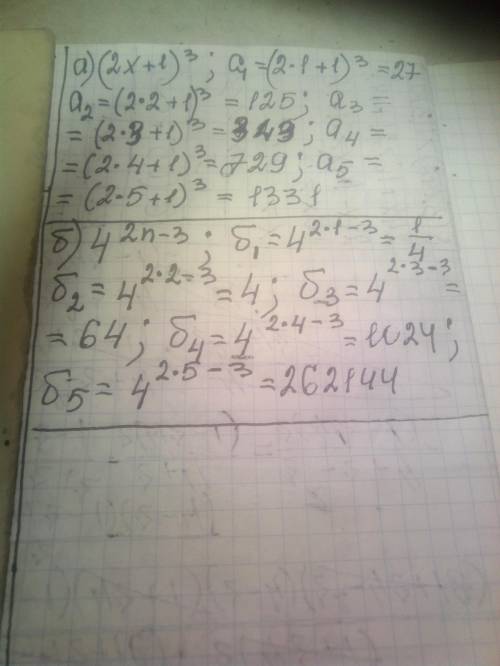 а) (2x+1)³; a₁=(2·1+1)³=27
a₂=(2·2+1)³=125; a₃=
=(2·3+1)³=343; a₄=
=(2·4+1)³=729; a₅=
=(2·5+1)³=1331
б) 4²ⁿ⁻³; б₁=4^2·1-3=1/4
б₂=4^2·2-3=4; б₃=4^2·3-3=
=64; б₄=4^2·4-3=1024;
б₅=4^2·5-3=262144